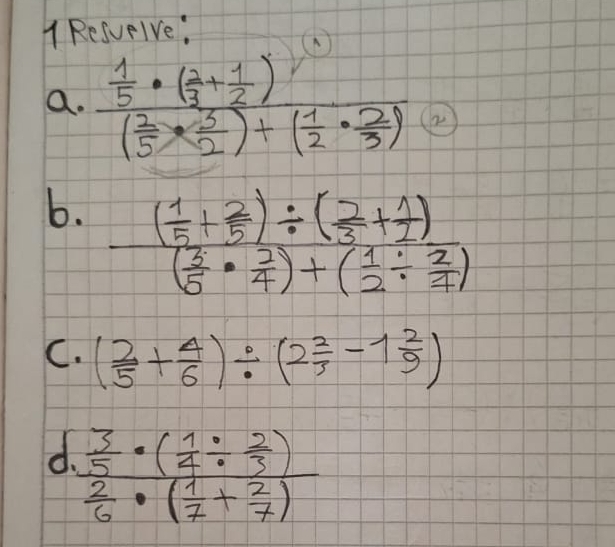 1 Resuelve:
a. 1/5 • (2/3 + 1/2) 1
(2/5 • 3/2) + (1/2 • 2/3) 2
b. (1/5 + 2/5) ÷ (2/3 + 1/2)
(3/5 • 2/4) + (1/2 ÷ 2/4)
c. (2/5 + 4/6) ÷ (2 2/3 - 1 2/9)
d. 3/5 • (1/4 ÷ 2/3)
2/6 • (1/7 + 2/7)